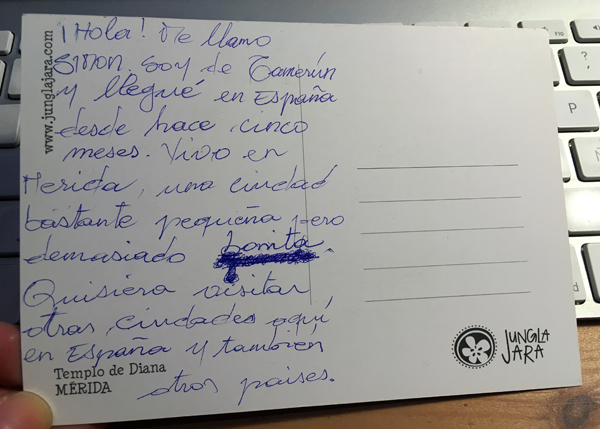 ¡Hola! Me llamo
SIMON. Soy de Camerún
y llegué en España
desde hace cinco
meses. Vivo en
Merida, una ciudad
bastante pequeña pero
demasiado bonita.
Quisiera visitar
otras ciudades aquí
en España y también
otros países.
www.junglajara.com
Templo de Diana
MÉRIDA
JUNGLA
JARA
P